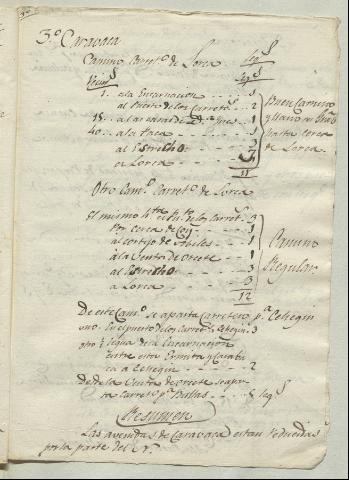 3.º Caravaca
Camino Carret.º de Lorca Leg.s
Vecin.s Leg.s
1. a la Encarnacion 1
al Puerto de los Carret.s 2
1
40 a la Paca 1
al Estrecho 3
a Lorca 3
11
Buen Camino
y llano
hasta cerca
de Lorca
Otro Cam.º Carret.º de Lorca
el mismo h.ta el Pu.to de los Carret.s 3
Por cerca de Coy 1
al cortijo de 1
a la Venta de Ceacete 1
al Estrecho 3
a Lorca 3
12
Camino
Regular
De este Cam.º se aparta Carretero p.a Cehegin
uno en el puerto de los Carret.s a Cehegin 3
otro ½ legua de la Encarnacion
entre esta Ermita y Carava
ca a Cehegin 2
Desde la Venta de se apar
ta Carret.º p.a Bullas 5 leg.s
Resumen
Las avenidas de Caravaca estan reducidas
por la parte del